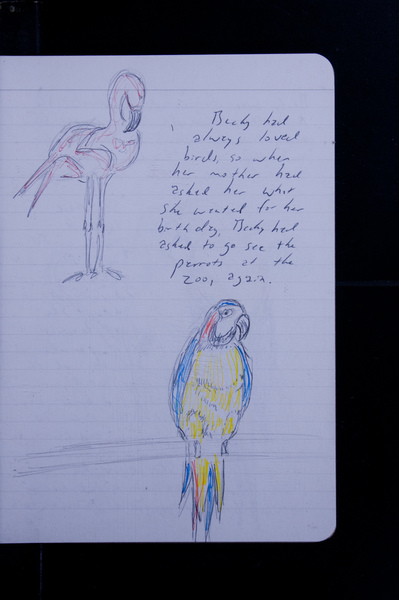 Becky had
always loved
birds, so when
her mother had
asked her what
she wanted for her
birthday, Becky had
asked to go see the
parrots at the
zoo, again.